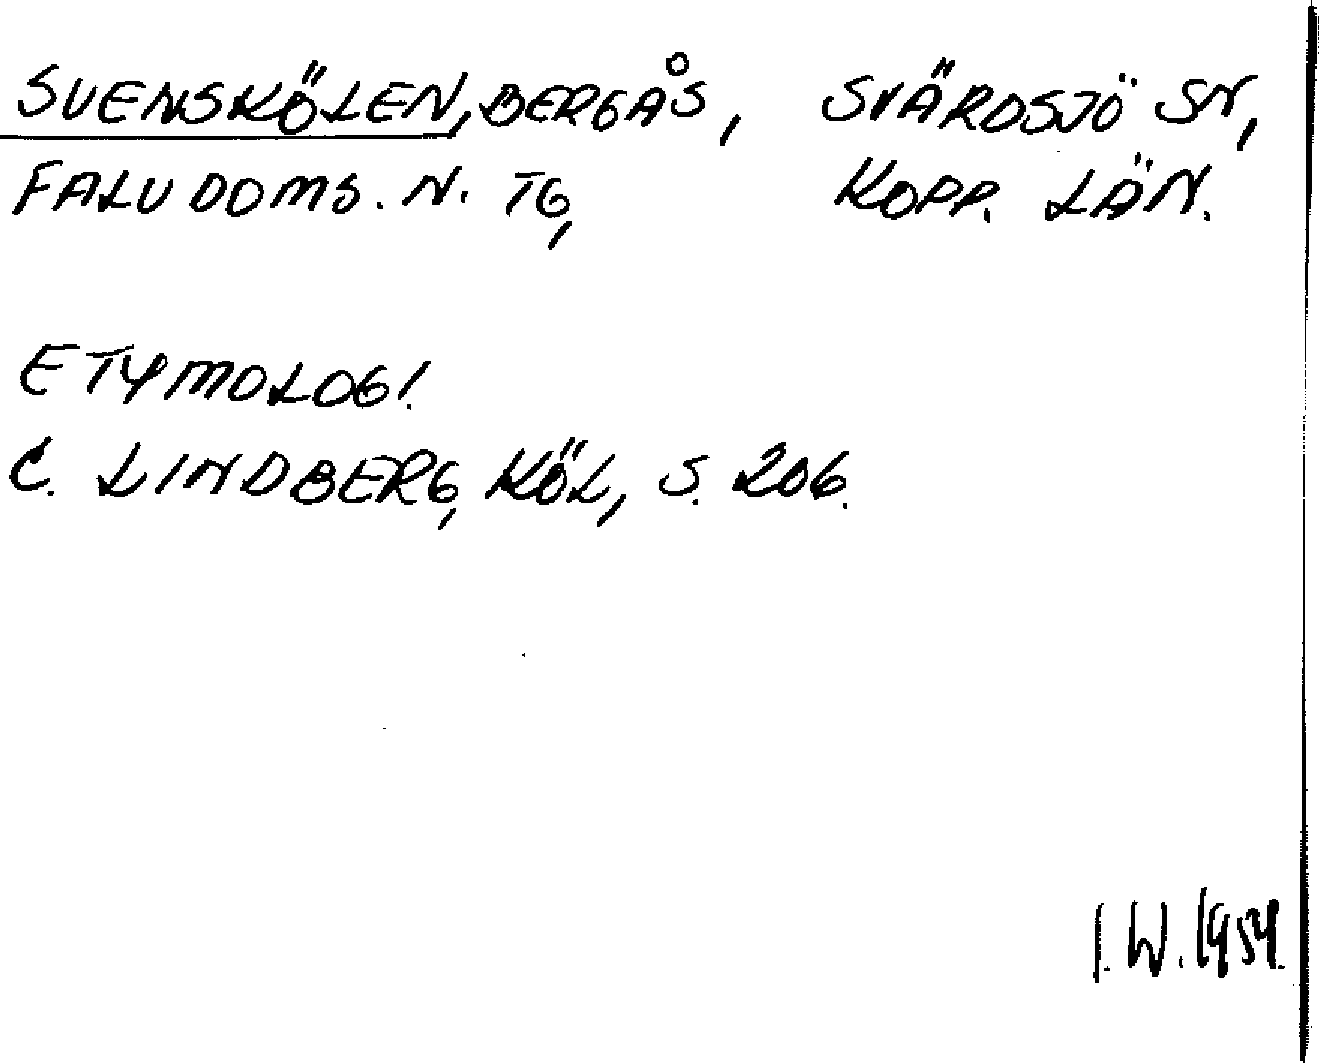 SVENSKÖLEN, BERGÅS, SVÄRDSJÖ SN,
FALU DOMS. N. TG, KOPP. LÄN.
ETYMOLOGI.
C. LINDBERG, KÖL, S. 206.
I. W. 1954.